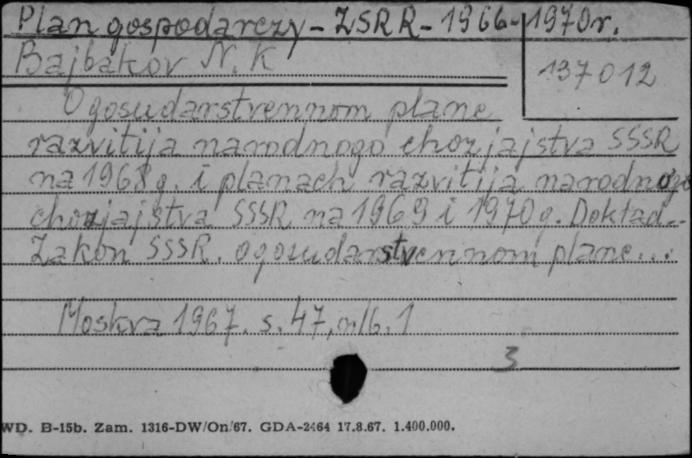 Plan gospodarczy - ZSRR - 1966-1970r.
Bajbakov N. K
137012
O gosudarstvennom plane
razvitija narodnogo chozjajstva SSSR
na 1968 g. i planach razvitija narodnogo
chozjajstva SSSR na 1969 i 1970 g. Dokład..
Zakon SSSR. o gosudarstvennom plane...
Moskva 1967. s. 47, nlb. 1
3
WD. B-15b. Zam. 1316-DW/On/67. GDA-2464 17.8.67. 1.400.000.